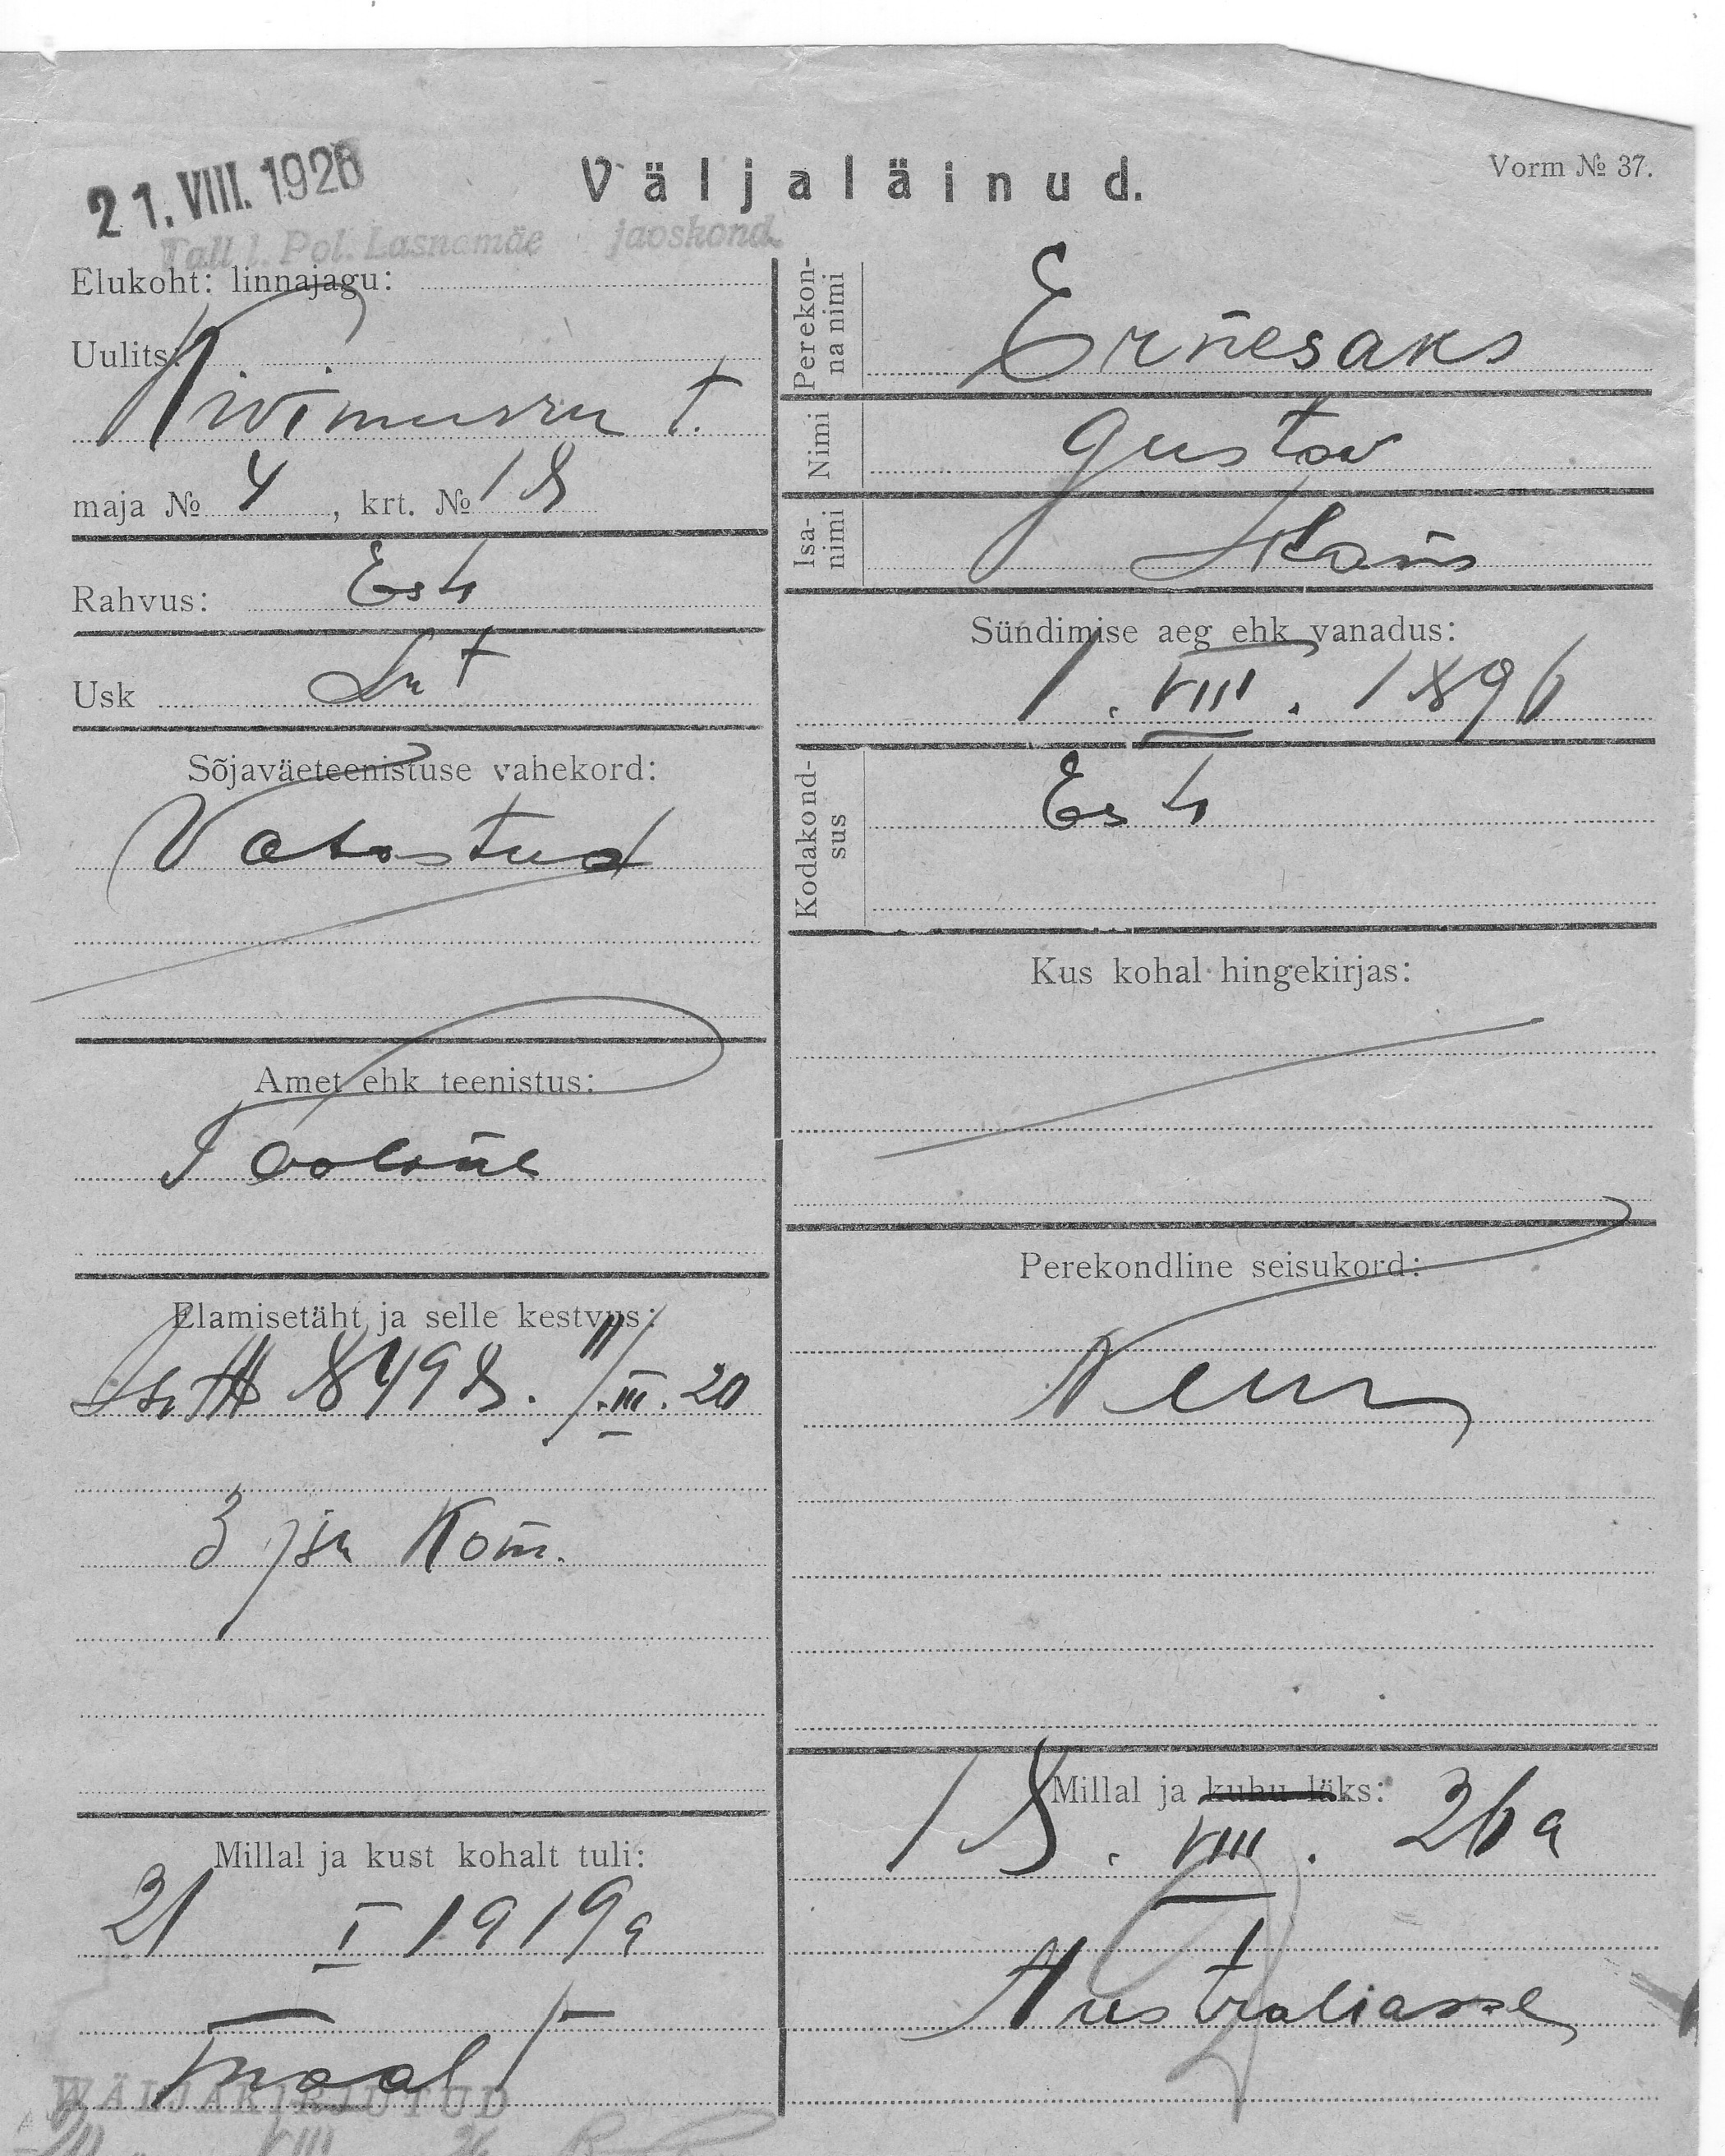 21. VIII. 1926
Väljaläinud.
Vorm № 37.
Tall. l. Pol. Lasnamäe jaoskond
Elukoht: linnajagu:
Uulits:
Kivimurru t.
maja № 4, krt. № 18
Rahvus: Est
Usk Lut
Sõjaväeteenistuse vahekord:
Vabastud
Amet ehk teenistus:
Tööline
Elamisetäht ja selle kestvus:
8498. 11/.III.20
3 jsk Kom.
Millal ja kust kohalt tuli:
21 I 1919 a
maalt
WÄLJAKIRJUTUD
VIII 26
Perekon-
na nimi
Ernesaks
Nimi
Gustav
Isa-
nimi
Hans
Sündimise aeg ehk vanadus:
1. VIII. 1896
Kodakond-
sus
Est
Kus kohal hingekirjas:
Perekondline seisukord:
Millal ja kuhu läks:
18. VIII. 26 a
Australiasse